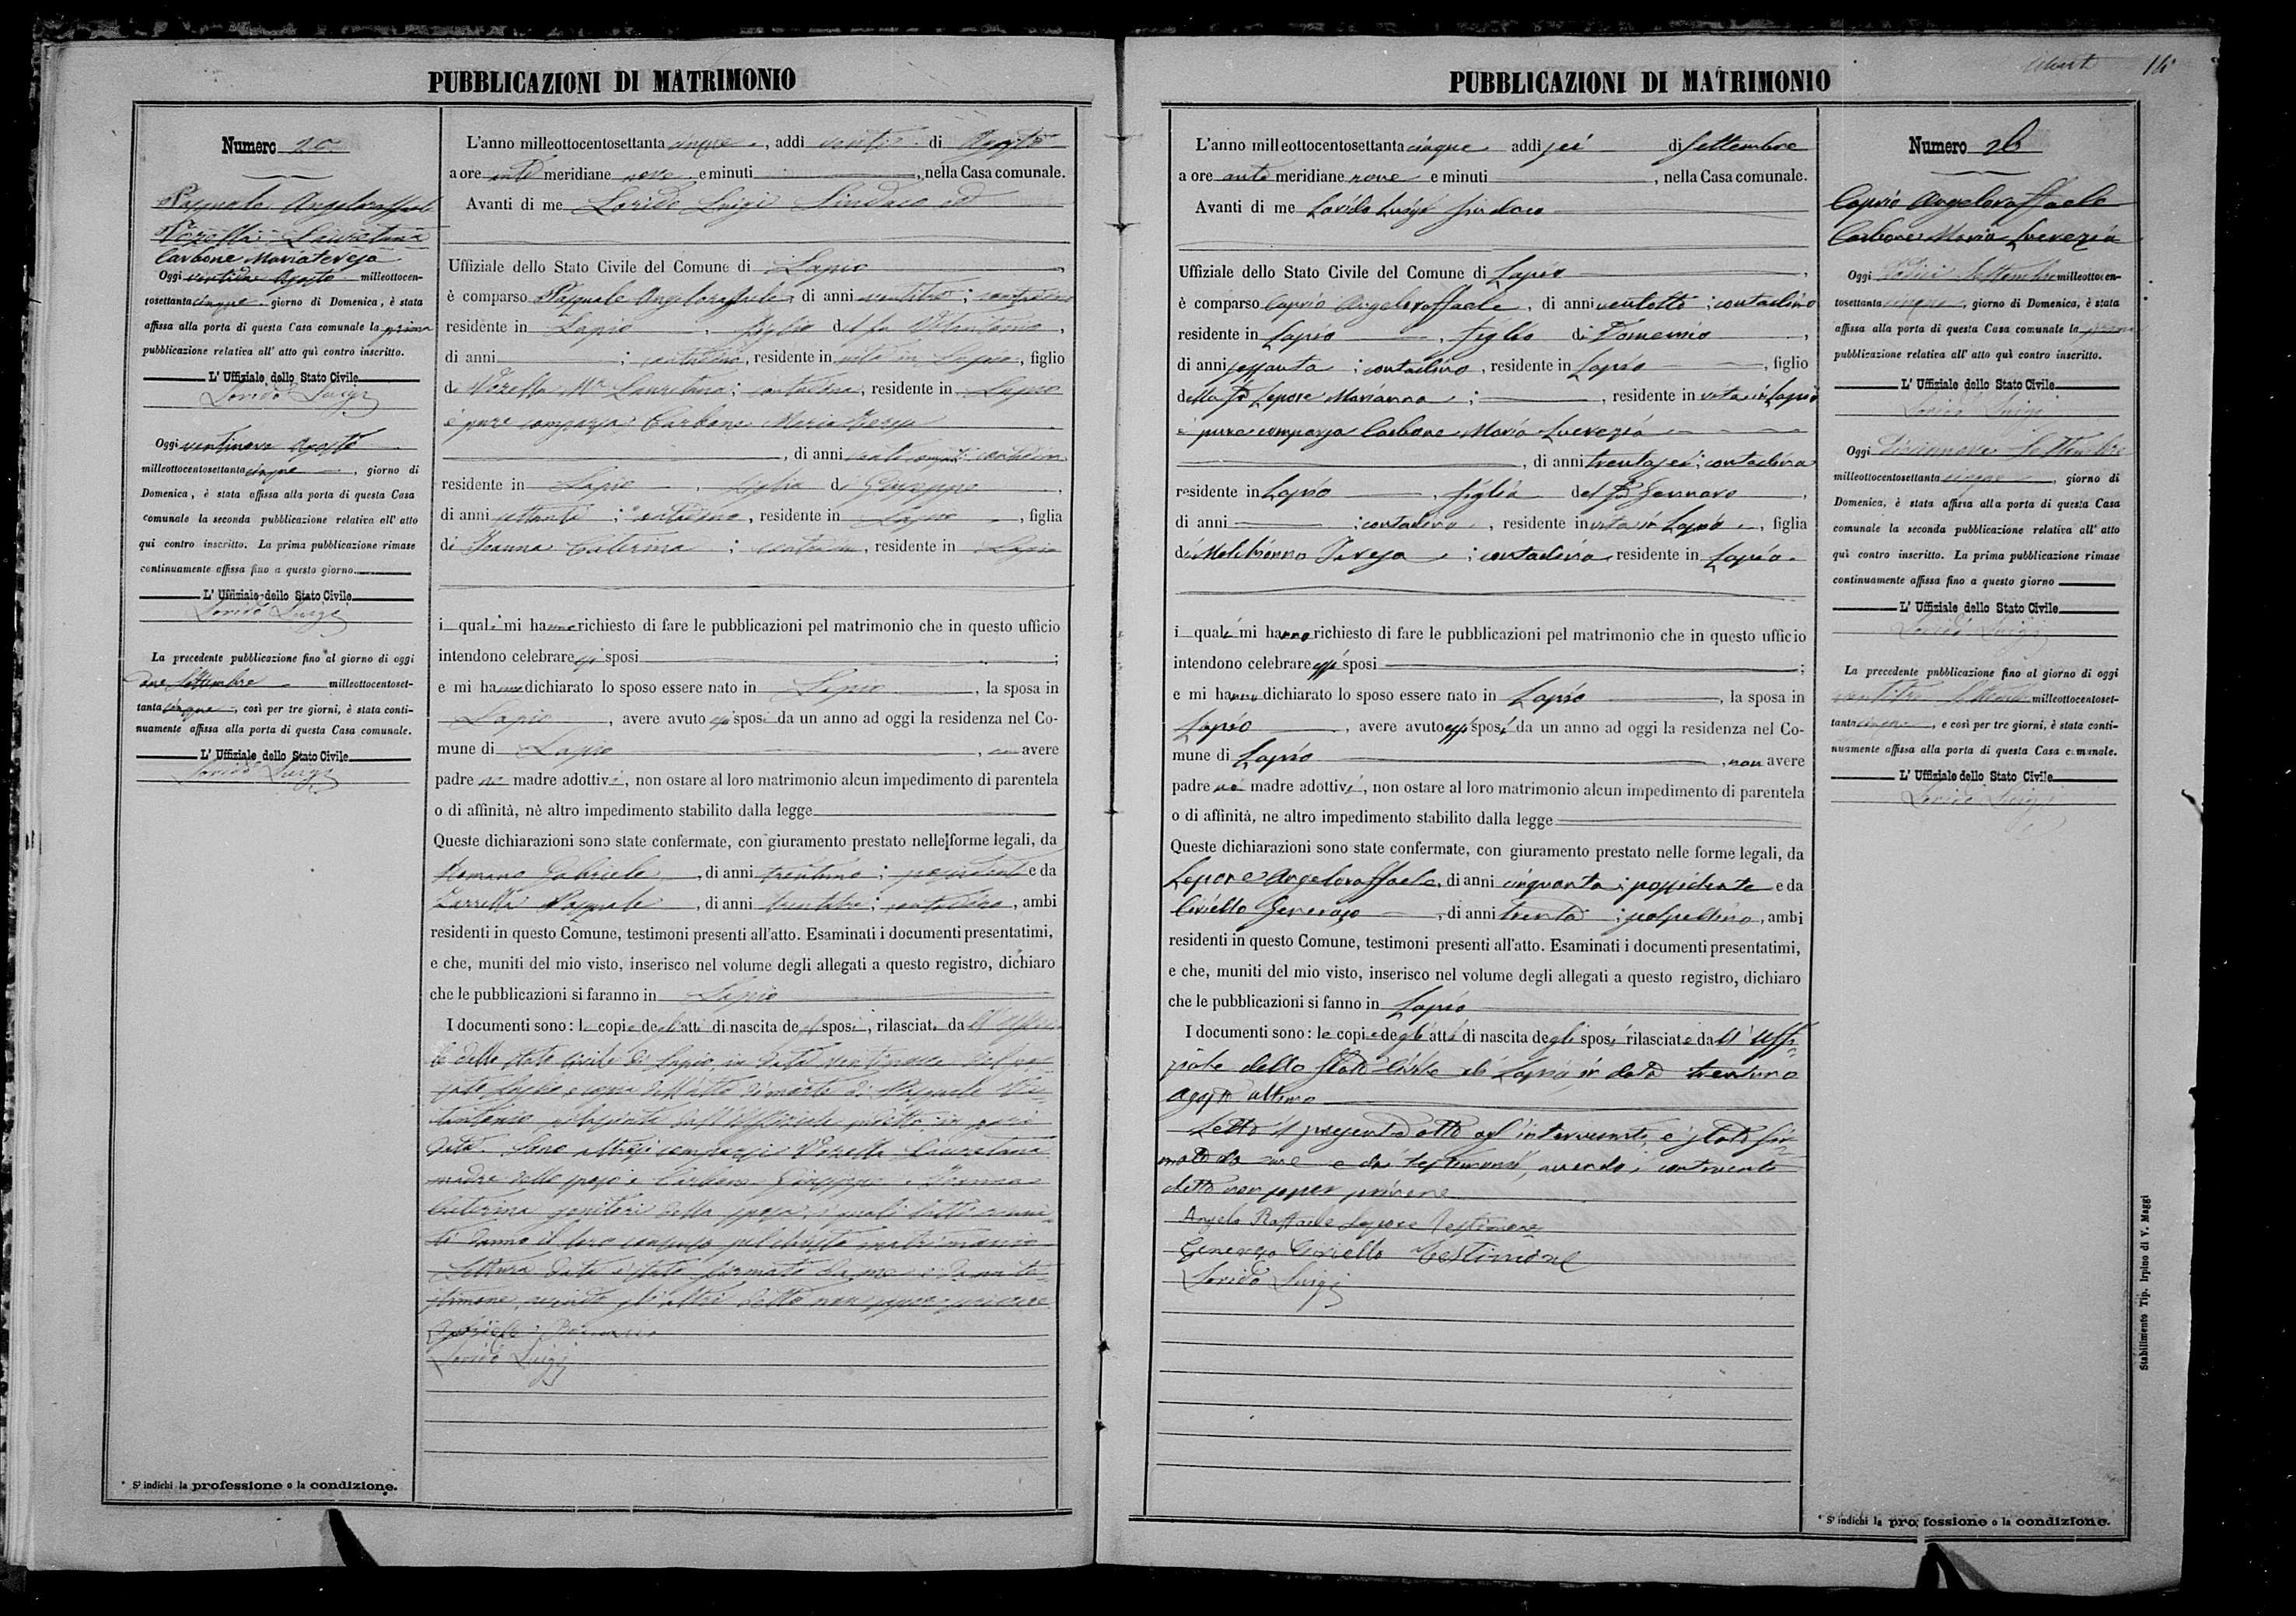 PUBBLICAZIONI DI MATRIMONIO
Numero
Pasquale Angeloraffaele
Vozella Lauretana
Carbone Mariateresa
Oggi ventidue Agosto milleottocen-
tosettantacinque giorno di Domenica, è stata
affissa alla porta di questa Casa comunale la prima
pubblicazione relativa all' atto quì contro inscritto.
L' Uffiziale dello Stato Civile
Lorido Luigi
Oggi ventinove Agosto
milleottocentosettantacinque, giorno di
Domenica, è stata affissa alla porta di questa Casa
comunale la seconda pubblicazione relativa all' atto
qui contro inscritto. La prima pubblicazione rimase
continuamente affissa fino a questo giorno.
L' Uffiziale dello Stato Civile
Lorido Luigi
La precedente pubblicazione fino al giorno di oggi
due Settembre milleottocentoset-
tantacinque, così per tre giorni, è stata conti-
nuamente affissa alla porta di questa Casa comunale.
L' Uffiziale dello Stato Civile
Lorido Luigi
* S' indichi la professione o la condizione.
L'anno milleottocentosettanta cinque, addì venti di Agosto
a ore ante meridiane nove e minuti, nella Casa comunale.
Avanti di me Lorido Luigi Sindaco ed
Uffiziale dello Stato Civile del Comune di Lapio,
è comparso Pasquale Angeloraffaele, di anni ventitre; contadino
residente in Lapio, figlio del fu Vitantonio,
di anni ; contadino, residente in vita in Lapio, figlio
di Vozella Ma Lauretana; contadina, residente in Lapio
è pure comparsa Carbone Maria Teresa
, di anni venti compiti contadina
residente in Lapio, figlia di Giuseppe,
di anni settanta; contadino, residente in Lapio, figlia
di Ioanna Caterina; contadina, residente in Lapio
i quali mi hanno richiesto di fare le pubblicazioni pel matrimonio che in questo ufficio
intendono celebrare essi sposi;
e mi hanno dichiarato lo sposo essere nato in Lapio, la sposa in
Lapio, avere avuto essi sposi da un anno ad oggi la residenza nel Co-
mune di Lapio, non avere
padre nè madre adottivi, non ostare al loro matrimonio alcun impedimento di parentela
o di affinità, nè altro impedimento stabilito dalla legge
Queste dichiarazioni sono state confermate, con giuramento prestato nelle forme legali, da
Romano Gabriele, di anni trentuno; possidente e da
Zarrella Pasquale, di anni trentatre; contadino, ambi
residenti in questo Comune, testimoni presenti all'atto. Esaminati i documenti presentatimi,
e che, muniti del mio visto, inserisco nel volume degli allegati a questo registro, dichiaro
che le pubblicazioni si faranno in Lapio
I documenti sono: le copie degli atti di nascita degli sposi, rilasciate dall'Uffizia-
le dello stato Civile di Lapio in data ventinove
Luglio, e copia dell'atto di morte di Pasquale Vi-
tantonio rilasciata dall'Uffiziale in pari
data. Sono altresì comparsi Vozella Lauretana
madre dello sposo e Carbone Giuseppe e Ioanna
Caterina genitori della sposa, i quali tutti riuni-
ti danno il loro consenso pel citato matrimonio
Lettura data è stato firmato da me e da un te-
stimone, avendo gli altri detto non saper scrivere
Gabriele Romano
Lorido Luigi
PUBBLICAZIONI DI MATRIMONIO
L'anno milleottocentosettanta cinque addì sei di Settembre
a ore ante meridiane nove e minuti, nella Casa comunale.
Avanti di me Lorido Luigi Sindaco
Uffiziale dello Stato Civile del Comune di Lapio,
è comparso Caprio Angeloraffaele, di anni ventotto; contadino
residente in Lapio, figlio di Domenico,
di anni sessanta; contadino, residente in Lapio, figlio
della fu Lepore Marianna; , residente in vita in Lapio
è pure comparsa Carbone Maria Lucrezia
, di anni trentasei; contadina
residente in Lapio, figlia del fu Gennaro,
di anni ; contadino, residente in vita in Lapio, figlia
di Melchionno Teresa; contadina residente in Lapio.
i quali mi hanno richiesto di fare le pubblicazioni pel matrimonio che in questo ufficio
intendono celebrare essi sposi;
e mi hanno dichiarato lo sposo essere nato in Lapio, la sposa in
Lapio, avere avuto essi sposi da un anno ad oggi la residenza nel Co-
mune di Lapio, non avere
padre nè madre adottivi, non ostare al loro matrimonio alcun impedimento di parentela
o di affinità, ne altro impedimento stabilito dalla legge
Queste dichiarazioni sono state confermate, con giuramento prestato nelle forme legali, da
Lepore Angeloraffaele, di anni cinquanta; possidente e da
Ciriello Generoso, di anni trenta; scalpellino, ambi
residenti in questo Comune, testimoni presenti all'atto. Esaminati i documenti presentatimi,
e che, muniti del mio visto, inserisco nel volume degli allegati a questo registro, dichiaro
che le pubblicazioni si fanno in Lapio
I documenti sono: le copie degli atti di nascita degli sposi rilasciate dall' Uffi-
ziale dello Stato Civile di Lapio in data trentuno
Agosto ultimo
Letto il presente atto agl'intervenuti, è stato fir-
mato da me e dai testimoni, avendo i contraenti
detto non saper scrivere
Angelo Raffaele Lepore Testimone
Generoso Ciriello Testimone
Lorido Luigi
14
Numero 26
Caprio Angeloraffaele
Carbone Maria Lucrezia
Oggi Dodici Settembre milleottocen-
tosettantacinque, giorno di Domenica, è stata
affissa alla porta di questa Casa comunale la prima
pubblicazione relativa all' atto quì contro inscritto.
L' Uffiziale dello Stato Civile
Lorido Luigi
Oggi Diciannove Settembre
milleottocentosettantacinque, giorno di
Domenica, è stata affissa alla porta di questa Casa
comunale la seconda pubblicazione relativa all' atto
quì contro inscritto. La prima pubblicazione rimase
continuamente affissa fino a questo giorno
L' Uffiziale dello Stato Civile
Lorido Luigi
La precedente pnbblicazione fino al giorno di oggi
ventitre Settembre milleottocentoset-
tantacinque, e così per tre giorni, è stata conti-
nuamente affissa alla porta di questa Casa comunale.
L' Uffiziale dello Stato Civile
Lorido Luigi
* S' indichi la professione o la condizione.
Stabilimento Tip. Irpino di V. Maggi